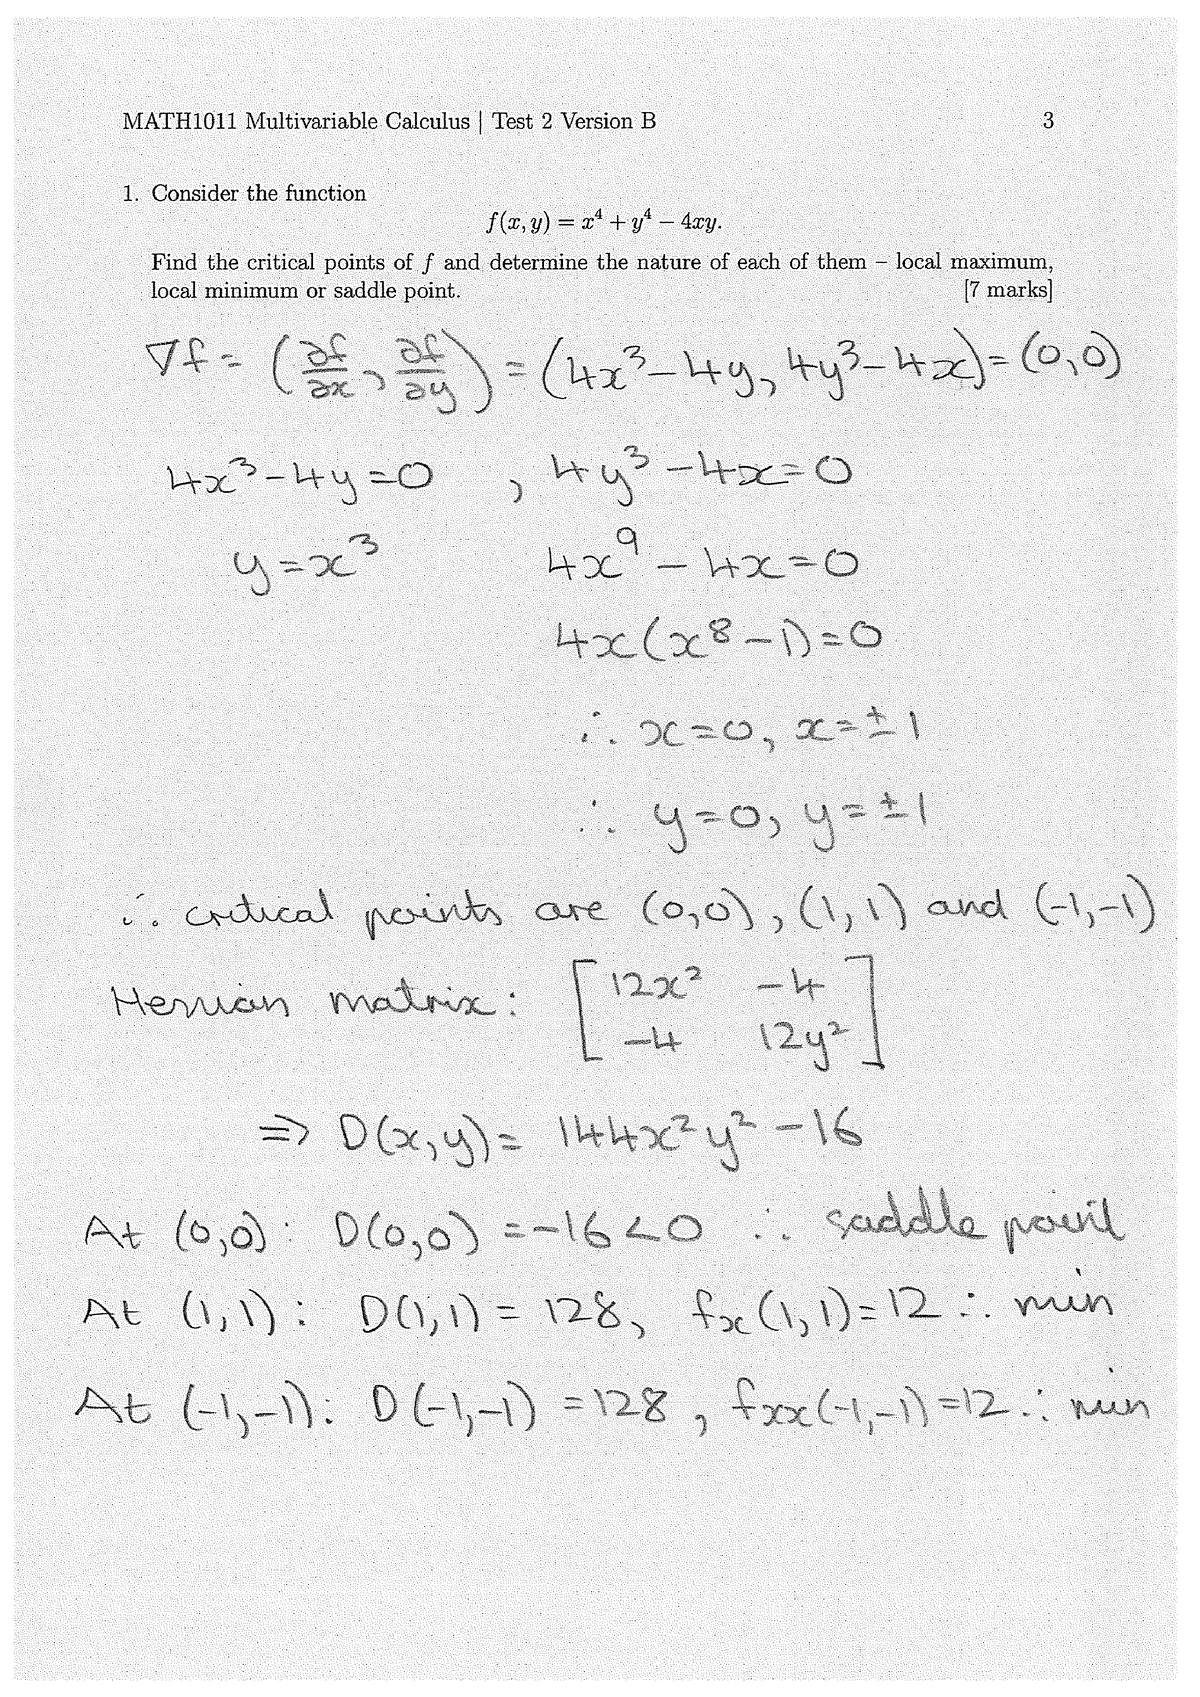 MATH1011 Multivariable Calculus | Test 2 Version B 3
1. Consider the function
f(x, y) = x⁴ + y⁴ − 4xy.
Find the critical points of f and determine the nature of each of them – local maximum,
local minimum or saddle point. [7 marks]
∇f = (∂f/∂x, ∂f/∂y) = (4x³−4y, 4y³−4x) = (0,0)
4x³−4y=0 , 4y³−4x=0
y=x³ 4x⁹−4x=0
4x(x⁸−1)=0
∴ x=0, x=±1
∴ y=0, y=±1
∴ critical points are (0,0), (1,1) and (-1,-1)
Hessian matrix: [12x² −4
−4 12y²]
⇒ D(x,y)= 144x²y² −16
At (0,0): D(0,0) =−16<0 ∴ saddle point
At (1,1): D(1,1) = 128, fx(1,1)=12 ∴ min
At (-1,-1): D(-1,-1) =128, fxx(-1,-1)=12 ∴ min